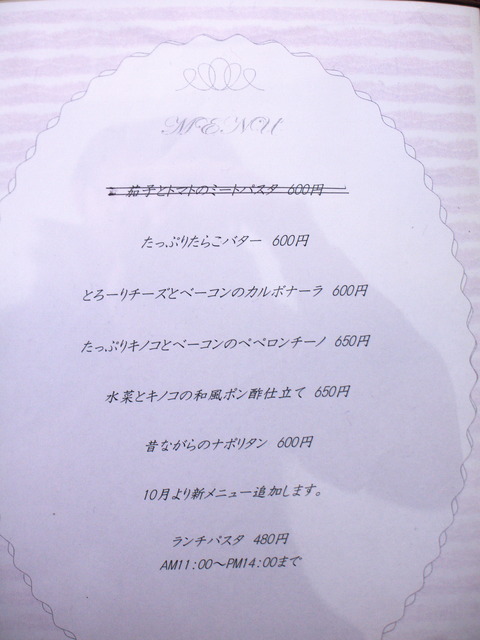 MENU
茄子とトマトのミートパスタ 600円
たっぷりたらこバター 600円
とろーりチーズとベーコンのカルボナーラ 600円
たっぷりキノコとベーコンのペペロンチーノ 650円
水菜とキノコの和風ポン酢仕立て 650円
昔ながらのナポリタン 600円
10月より新メニュー追加します。
ランチパスタ 480円
AM11:00～PM14:00まで